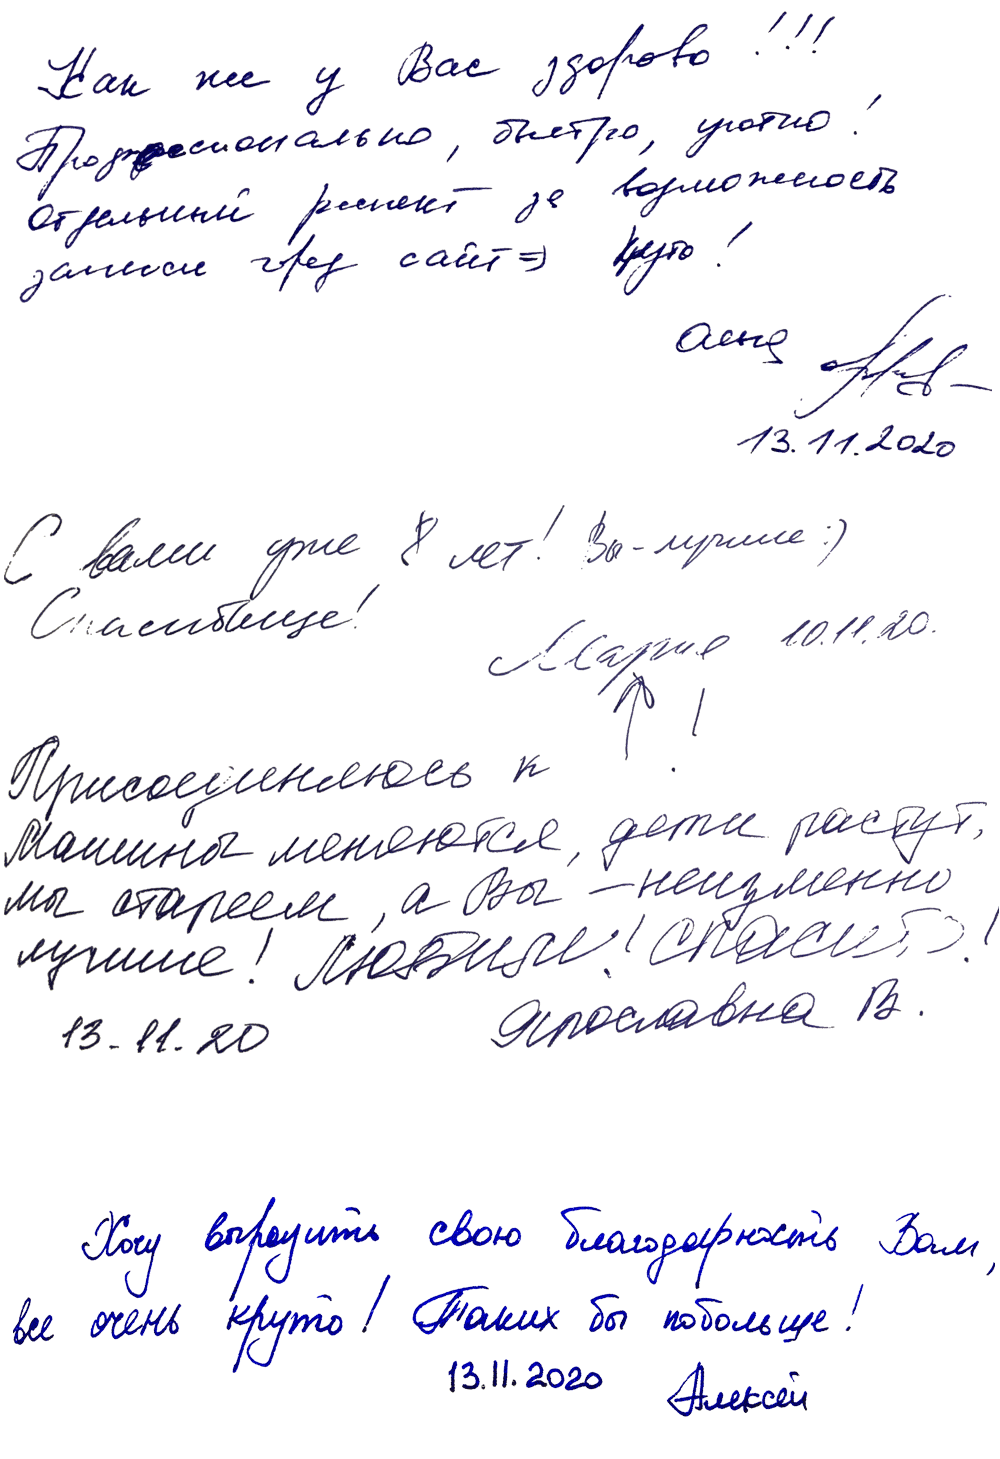 Как же у Вас здорово!!!
Профессионально, быстро, уютно!
отдельный респект за возможность
записи через сайт =) Круто!
Алена
13.11.2020
С вами уже 8 лет! Вы - лучшие :)
Спасибище!
Мария 10.11.20.
Присоединяюсь к ↑ !
Машины меняются, дети растут,
мы стареем, а Вы - неизменно
лучшие! Любим! Спасибо!
Ярославна В.
13.11.20
Хочу выразить свою благодарность Вам,
все очень круто! Таких бы побольше!
13.11.2020
Алексей